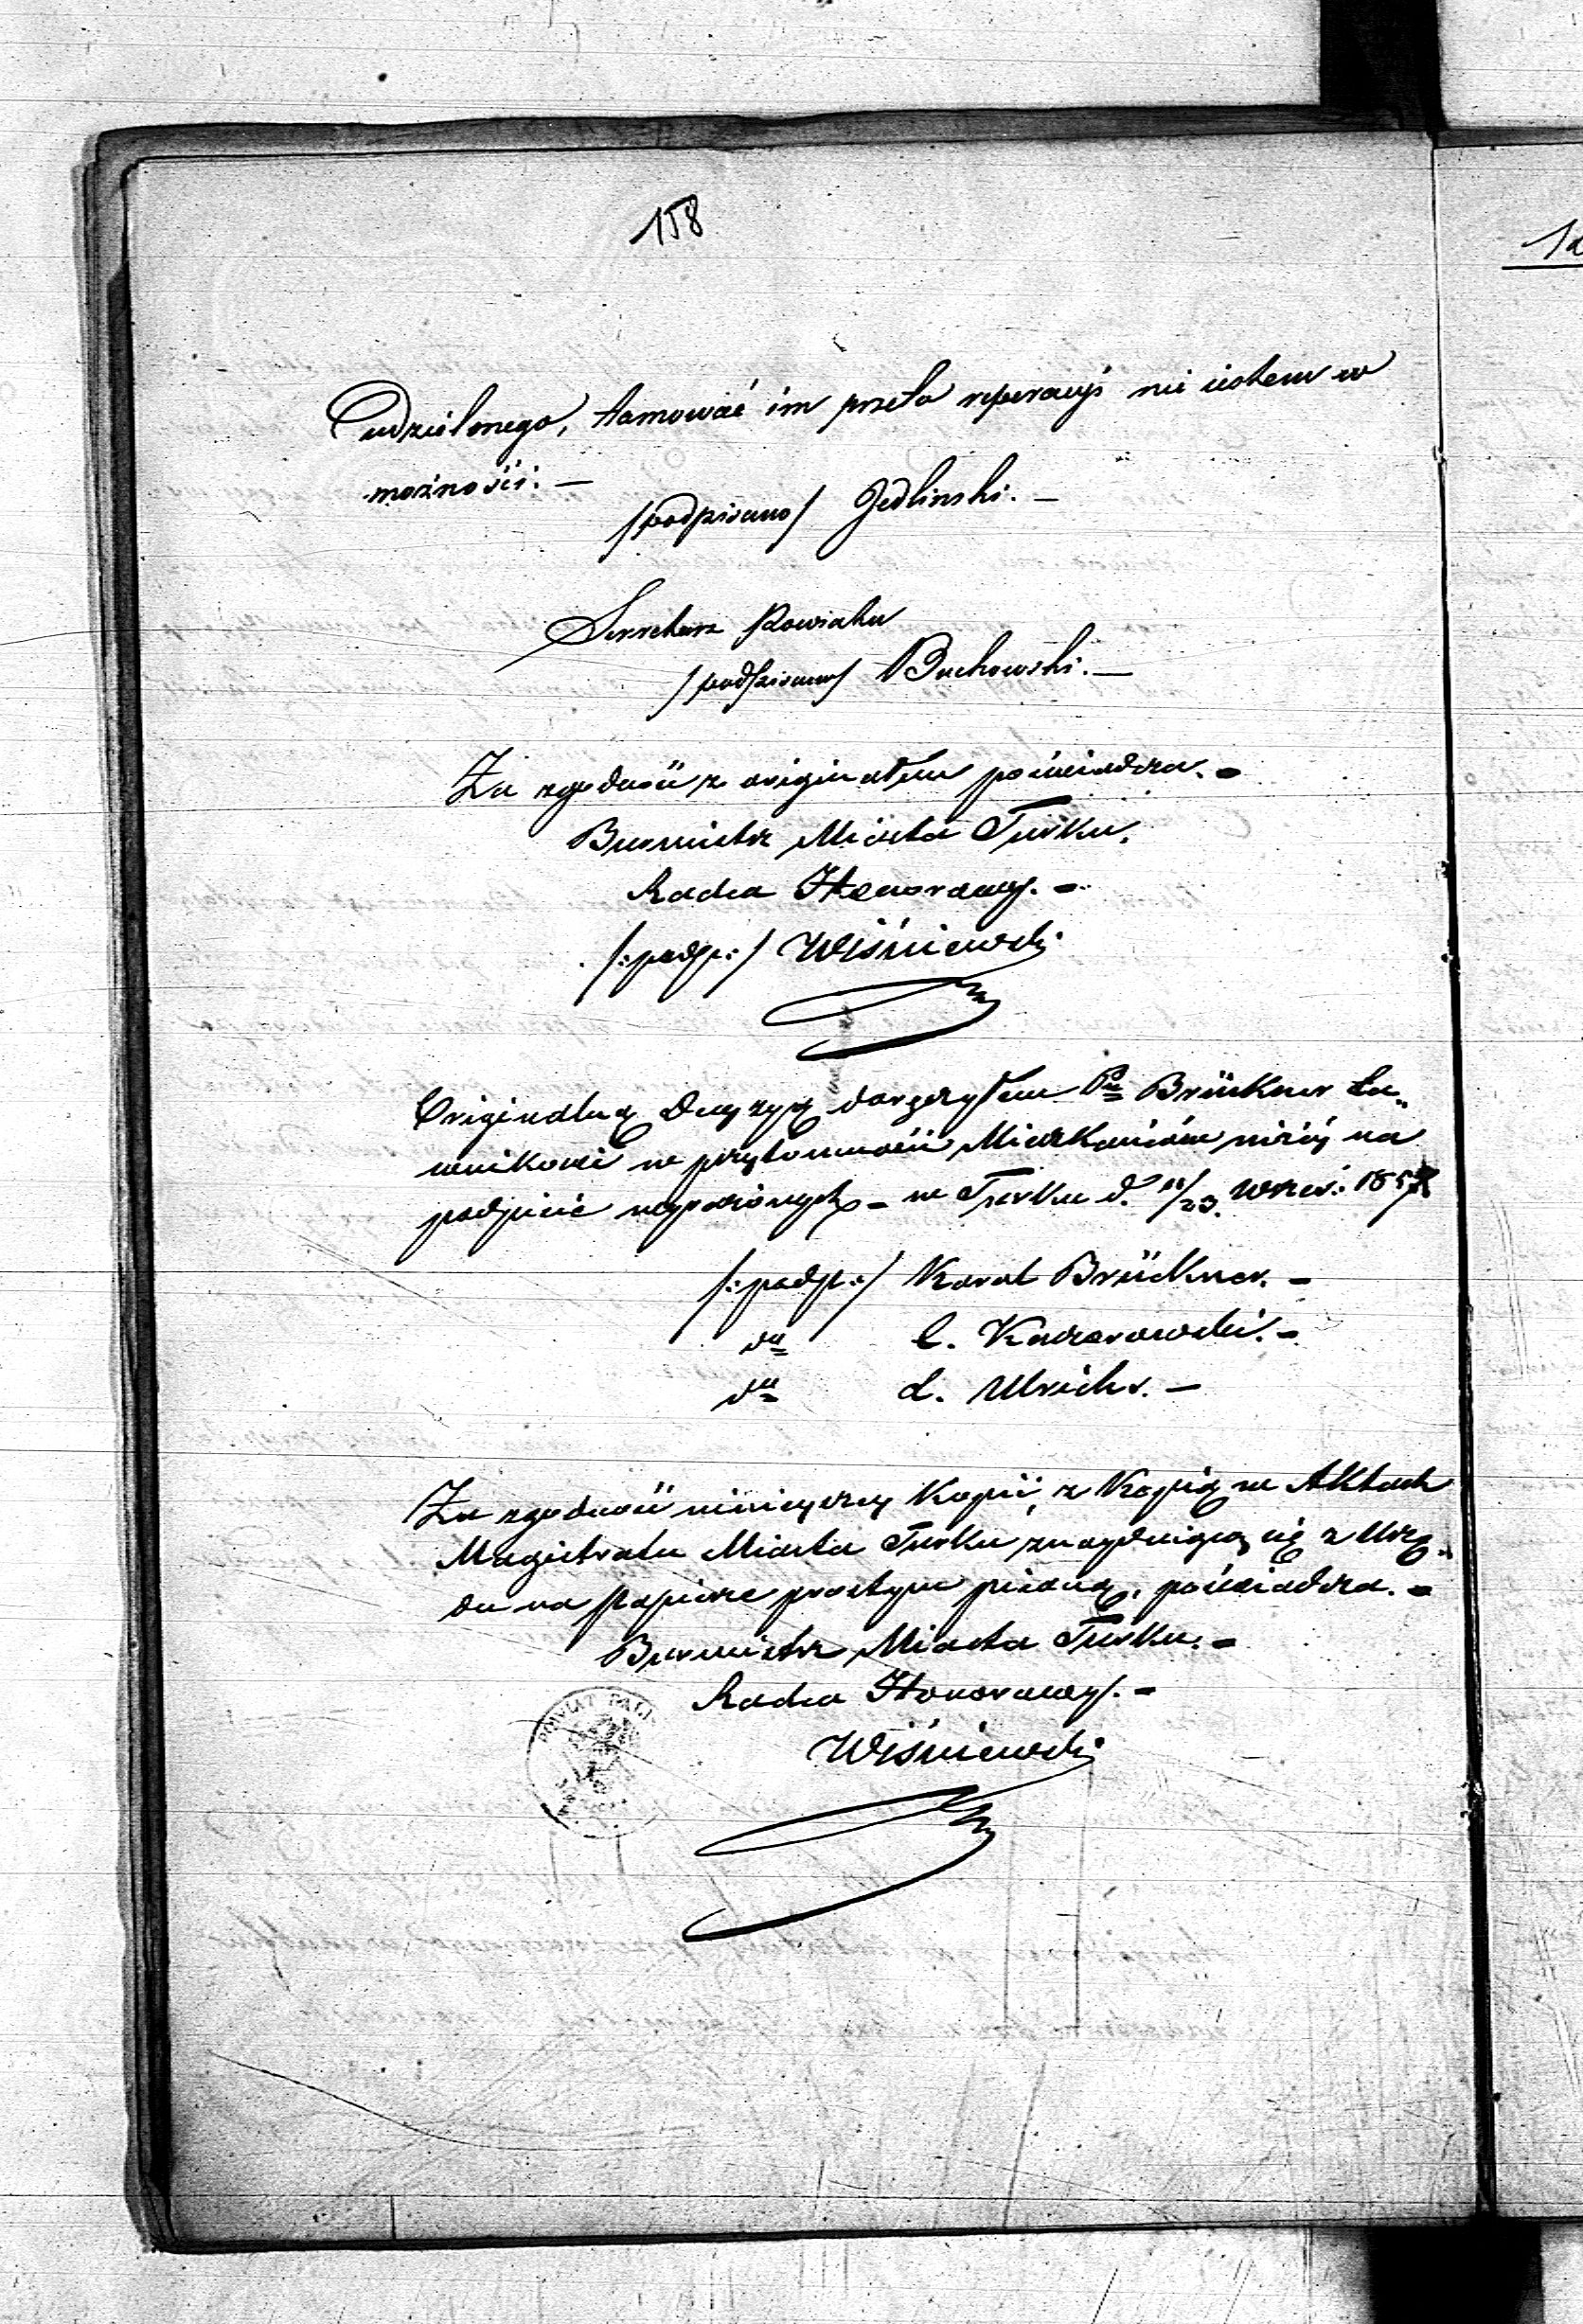 158
udzielonego, tamować im przeto reperacyi nie jestem w
możności. —
/podpisano/ Jedlinski. —
Sekretarz Powiatu
/podpisano/ Buchowski. —
Za zgodność z originałem poświadcza. -
Burmistrz Miasta Turku.
Radca Honorowy. -
/:podp:/ Wiśniewski
Originalną Decyzyą doręczyłem Pu Brückner Ła„
wnikowi w przytomności Mieszkańców niżéj na
podpisie wyrażonych - w Turku d. 11/23. Wrześ: 185
/:podp:/ Karol Brückner. -
dto C. Kaczorowski. -
dto L. Ulrichs. —
Za zgodność niniejszey Kopii, z Kopią w Aktach
Magistratu Miasta Turku znayduiącą się z Urzę„
du na papierze prostym pisaną, poświadcza. -
Burmistrz Miasta Turku. -
Radca Honorowy. -
Wiśniewski
POWIAT KALI